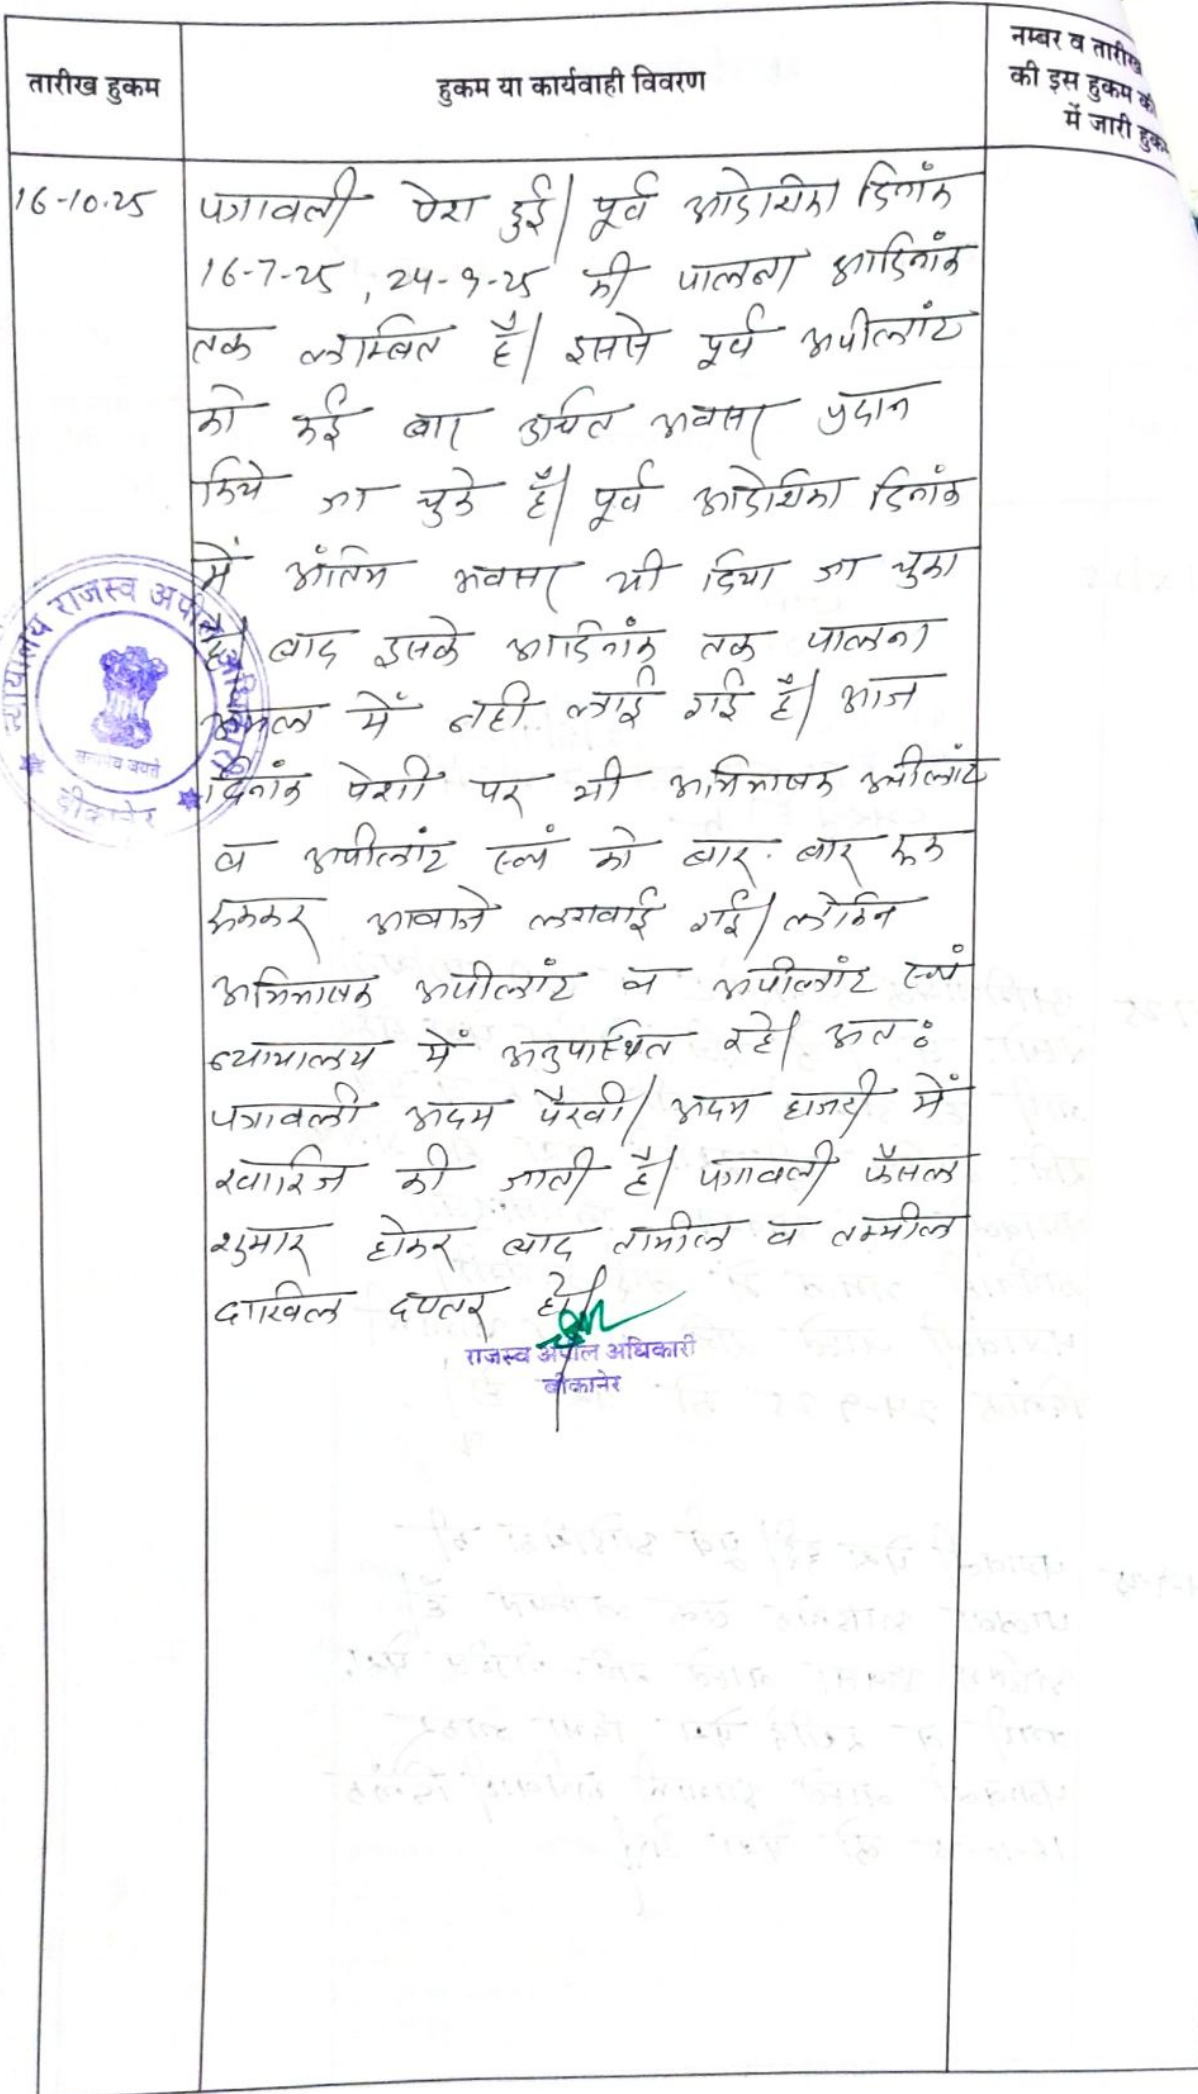 तारीख हुकम
हुकम या कार्यवाही विवरण
नम्बर व तारीख
की इस हुकम की
में जारी हुकम
16-10-25
पत्रावली पेश हुई। पूर्व आदेशिका दिनांक
16-7-25, 24-9-25 की पालना आदिनांक
तक लम्बित है। इससे पूर्व अपीलांट
को कई बार उचित अवसर प्रदान
किये जा चुके हैं। पूर्व आदेशिका दिनांक
में अंतिम अवसर भी दिया जा चुका
है। बाद इसके आदिनांक तक पालना
अमल में नही लाई गई है। आज
दिनांक पेशी पर भी अभिभाषक अपीलांट
व अपीलांट स्वयं को बार-बार रूक
रूककर आवाजे लगवाई गई। लेकिन
अभिभाषक अपीलांट व अपीलांट स्वयं
न्यायालय में अनुपस्थित रहे। अतः
पत्रावली अदम पैरवी/अदम हाजरी में
खारिज की जाती है। पत्रावली फैसल
शुमार होकर बाद तामील व तकमील
दाखिल दफ्तर हो।
राजस्व अपील अधिकारी
बीकानेर
न्यायालय राजस्व अपील अधिकारी
सत्यमेव जयते
बीकानेर